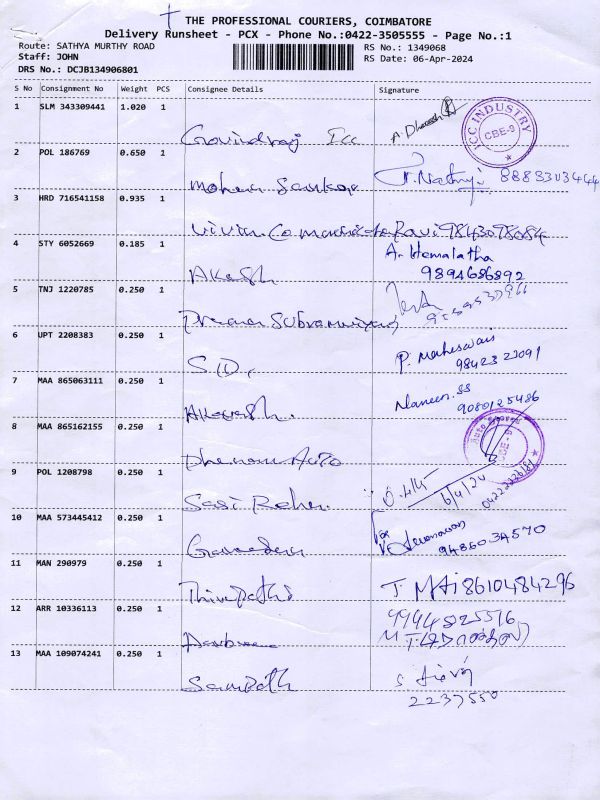 THE PROFESSIONAL COURIERS, COIMBATORE
Delivery Runsheet - PCX - Phone No.:0422-3505555 - Page No.:1
Route: SATHYA MURTHY ROAD RS No.: 1349068
Staff: JOHN RS Date: 06-Apr-2024
DRS No.: DCJB134906801
S No Consignment No Weight PCS Consignee Details Signature
1 SLM 343309441 1.020 1
Govindraj Icc A. Dhanesh
ICC INDUSTRY CBE-9
2 POL 186769 0.650 1
Mohan Sankar 8883303444
3 HRD 716541158 0.935 1
Ravi 9843098084
4 STY 6052669 0.185 1
Akash A. Hemalatha
9894686892
5 TNJ 1220785 0.250 1
6 UPT 2208383 0.250 1
S.D. P. Maheswari
98423 22091
7 MAA 865063111 0.250 1
Akash. Naneen.SS
9080125486
8 MAA 865162155 0.250 1
Auto CBE-9
9 POL 1208798 0.250 1
Sasi 6/4/24
10 MAA 573445412 0.250 1
9486034570
11 MAN 290979 0.250 1
Thirupathi T. MAi 8610484296
12 ARR 10336113 0.250 1
9944825516
13 MAA 109074241 0.250 1
Sampath
2237550